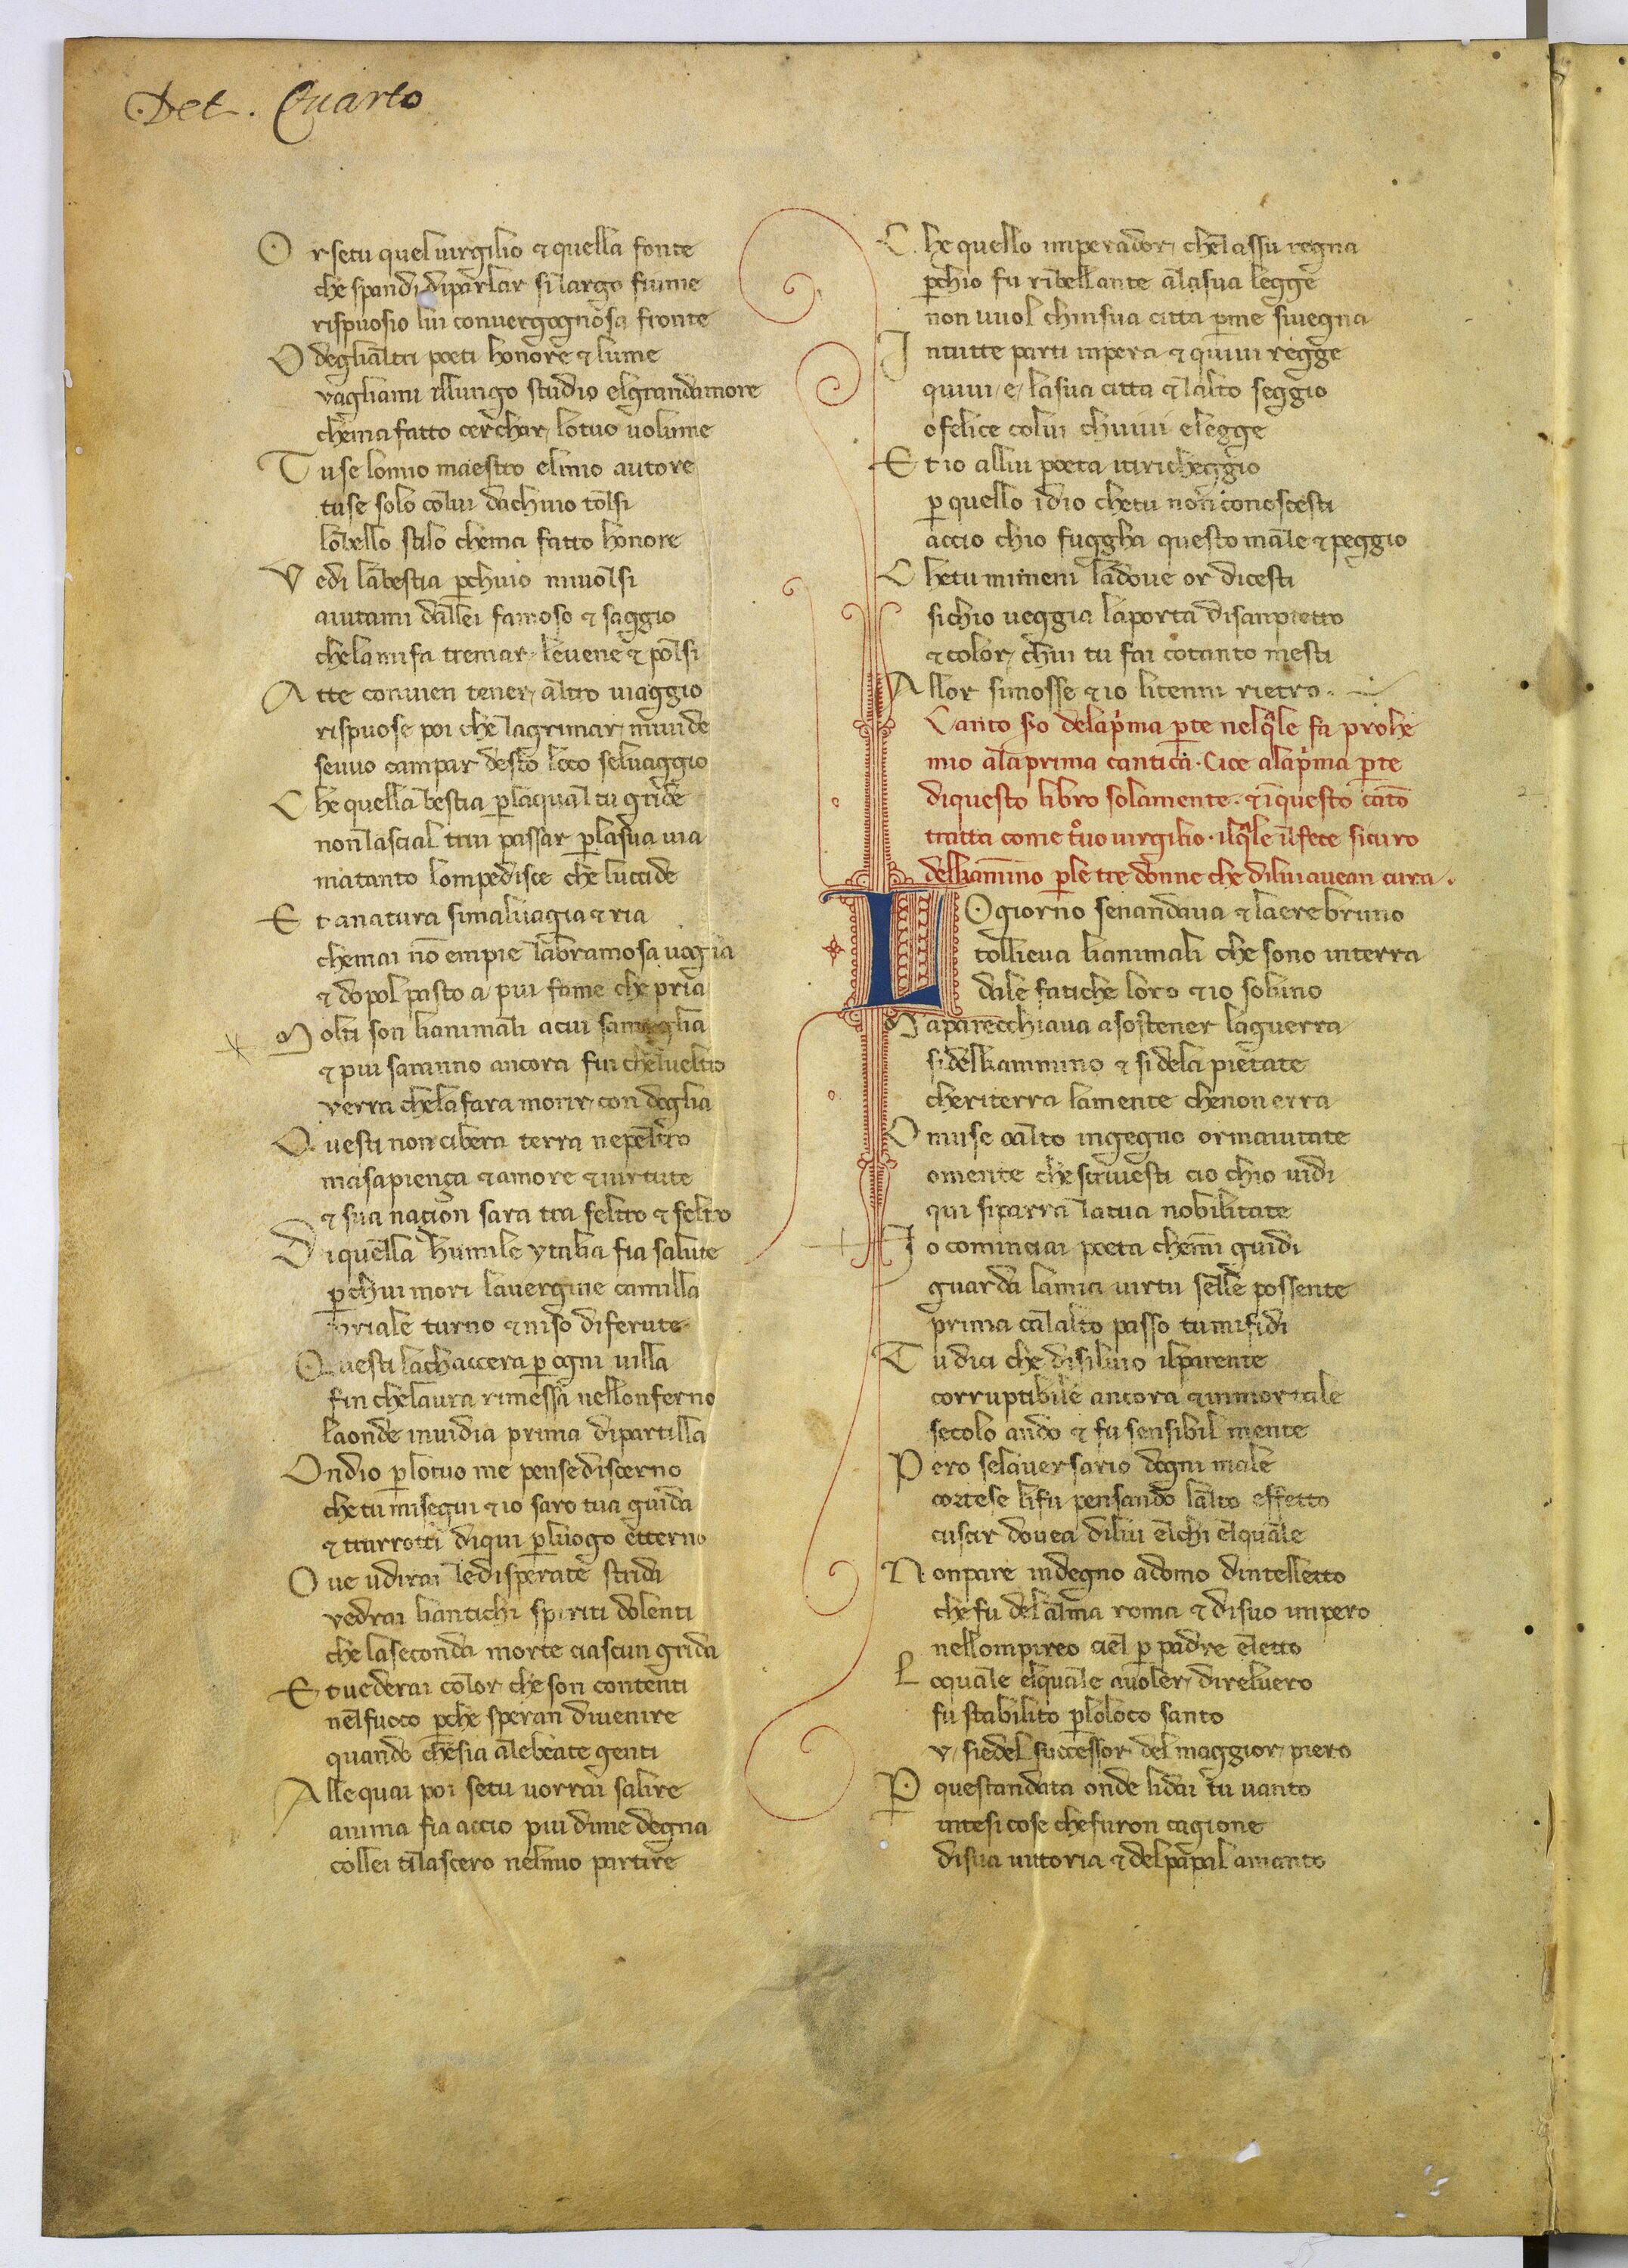 Det. Quarto
O r setu quel uirgilio & quella fonte
che spandi diparlar silargo fiume
rispuosio lui conuergognosa fronte
O deglialtri poeti honore & lume
vagliami illungo studio elgrandamore
chemafatto cerchar lotuo uolume
T u se lomio maestro elmio autore
tuse solo colui dachuio tolsi
lobello stilo chema fatto honore
V edi labestia perchuio miuolsi
aiutami dallei famoso & saggio
chelamifa tremar leuene & polsi
A tte conuien tener altro uiaggio
rispuose poi che lagrimar miuide
seuuo campar desto loco seluaggio
C he quella bestia perlaqual tu gride
nonlascial trui passar perlasua uia
matanto lompedisce che luccide
E t anatura simaluagia & ria
chemai non empie labramosa uoglia
& dopol pasto a piu fame che pria
M olti son lianimali acui samoglia
& piu saranno ancora fin chelueltro
verra chelafara morir con doglia
Q uesti non cibera terra nepeltro
masapiença & amore & uirtute
& sua nation sara tra feltro & feltro
D iquella humile ytalia fia salute
perchui mori lauergine camilla
euriale turno & niso diferute
Q uesti lachaccera per ogni uilla
fin chelaura rimessa nellonferno
laonde inuidia prima dipartilla
O ndio perlotuo me pensediscerno
che tu misegui & io saro tua guida
& trarrotti diqui perluogo etterno
O ue udirai ledisperate strida
vedrai liantichi spiriti dolenti
che laseconda morte ciascun grida
E t uederai color che son contenti
nelfuoco perche speran diuenire
quando chesia alebeate genti
A llequai poi setu uorrai salire
anima fia accio piu dime degna
collei tilascero nelmio partire
C he quello imperador chelassu regna
perchio fu ribellante alasua legge
non uuol chinsua citta perme siuegna
I ntutte parti inpera & quiui regge
quiui e lasua citta & lalto seggio
o felice colui chuiui elegge
E t io allui poeta iotiricheggio
per quello idio chetu non conoscesti
accio chio fuggha questo male & peggio
C hetu mimeni ladoue or dicesti
sichio ueggia laporta disanpietro
& color chui tu fai cotanto mesti
A llor simosse & io litenni rietro.
Canto secondo delaprima parte nelquale fa prohe
mio alaprima cantica. Cioe alaprima parte
diquesto libro solamente. & inquesto canto
tratta come trouo uirgilio. ilquale ilfece sicuro
delkamino perle tre donne che dilui auean cura.
L O giorno senandaua & laere bruno
tollieua lianimali che sono interra
dale fatiche loro & io soluno
M aparecchiaua asostener laguerra
sidelkammino & si dela pietate
cheriterra lamente chenon erra
O muse oalto ingegno ormaiutate
omente che scriuesti cio chio uidi
qui siparra latua nobilitate
I o cominciai poeta chemi guidi
guarda lamia uirtu selle possente
prima calalto passo tumifidi
T u dici che disiluio ilparente
corruptibile ancora & immortale
secolo ando & fu sensibil mente
P ero selauersario dogni male
cortese lifu pensando lalto effetto
cuscir douea dilui elchi elquale
N onpare indegno adomo dintelletto
che fu delalma roma & disuo impero
nellompireo ciel per padre eletto
L oquale elquale auoler direluero
fu stabilito perloloco santo
v siedel successor del maggior piero
P er questandata onde lidai tu uanto
intesi cose chefuron cagione
disua uittoria & delpapal amanto